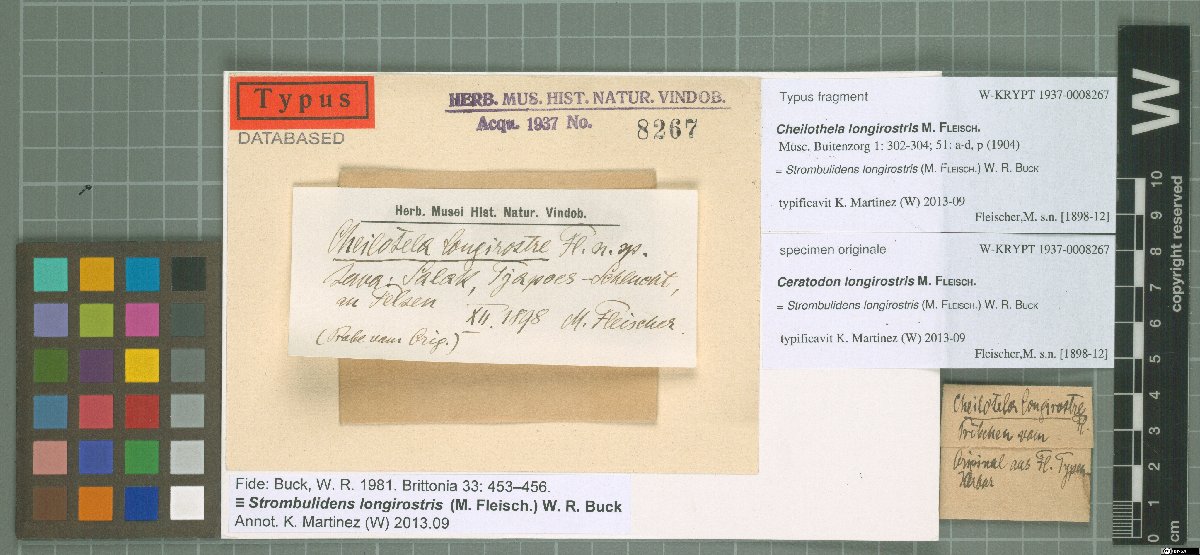 Typus
DATABASED
HERB. MUS. HIST. NATUR. VINDOB.
Acqu. 1937 No. 8267
Herb. Musei Hist. Natur. Vindob.
Cheilotela longirostre Fl. n. sp.
Java - Salak, Tjapoes-Schlucht,
an Felsen
XII. 1898 M. Fleischer
(Probe vom Orig.)
Typus fragment W-KRYPT 1937-0008267
Cheilothela longirostris M. FLEISCH.
Musc. Buitenzorg 1: 302-304; 51: a-d, p (1904)
= Strombulidens longirostris (M. FLEISCH.) W. R. BUCK
typificavit K. Martinez (W) 2013-09
Fleischer,M. s.n. [1898-12]
specimen originale W-KRYPT 1937-0008267
Ceratodon longirostris M. FLEISCH.
= Strombulidens longirostris (M. FLEISCH.) W. R. BUCK
typificavit K. Martinez (W) 2013-09
Fleischer,M. s.n. [1898-12]
Cheilotela longirostre
Fl.
Pröbchen vom
Original aus Fl. Typen
Herbar
Fide: Buck, W. R. 1981. Brittonia 33: 453–456.
≡ Strombulidens longirostris (M. Fleisch.) W. R. Buck
Annot. K. Martinez (W) 2013.09
W
copyright reserved
10
9
8
7
6
5
4
3
2
1
0
cm